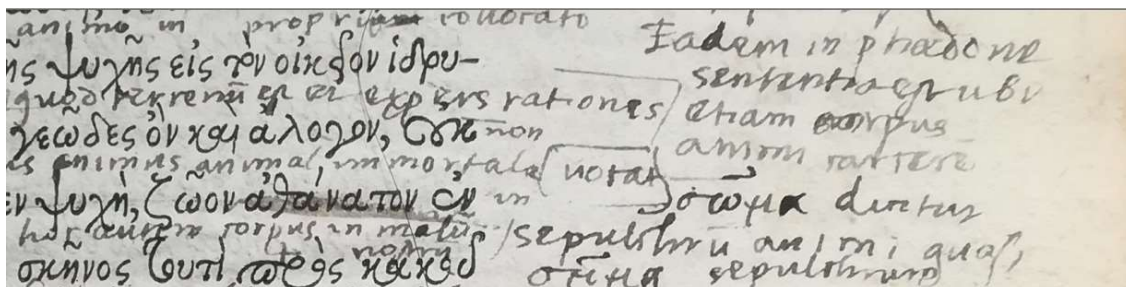 animo in proprium collocato
ης ψυχῆς εἰς τὸν οἰκεῖον ἱδρυ-
quod terrenū est et expers rationis
γεῶδες ὂν καὶ ἄλογον, οὐκ non
animus animal, immortale vocat
ἐν ψυχῇ, ζῶον ἀθάνατον ἐν in
hoc autem corpus in malū
σκῆνος τουτὶ πρὸς κακοῦ
Eadem in phædone
sententia est ubi
etiam corpus
animi carcere
σῶμα dicitur
sepulchrū animi, quasi
σῆμα sepulchrum